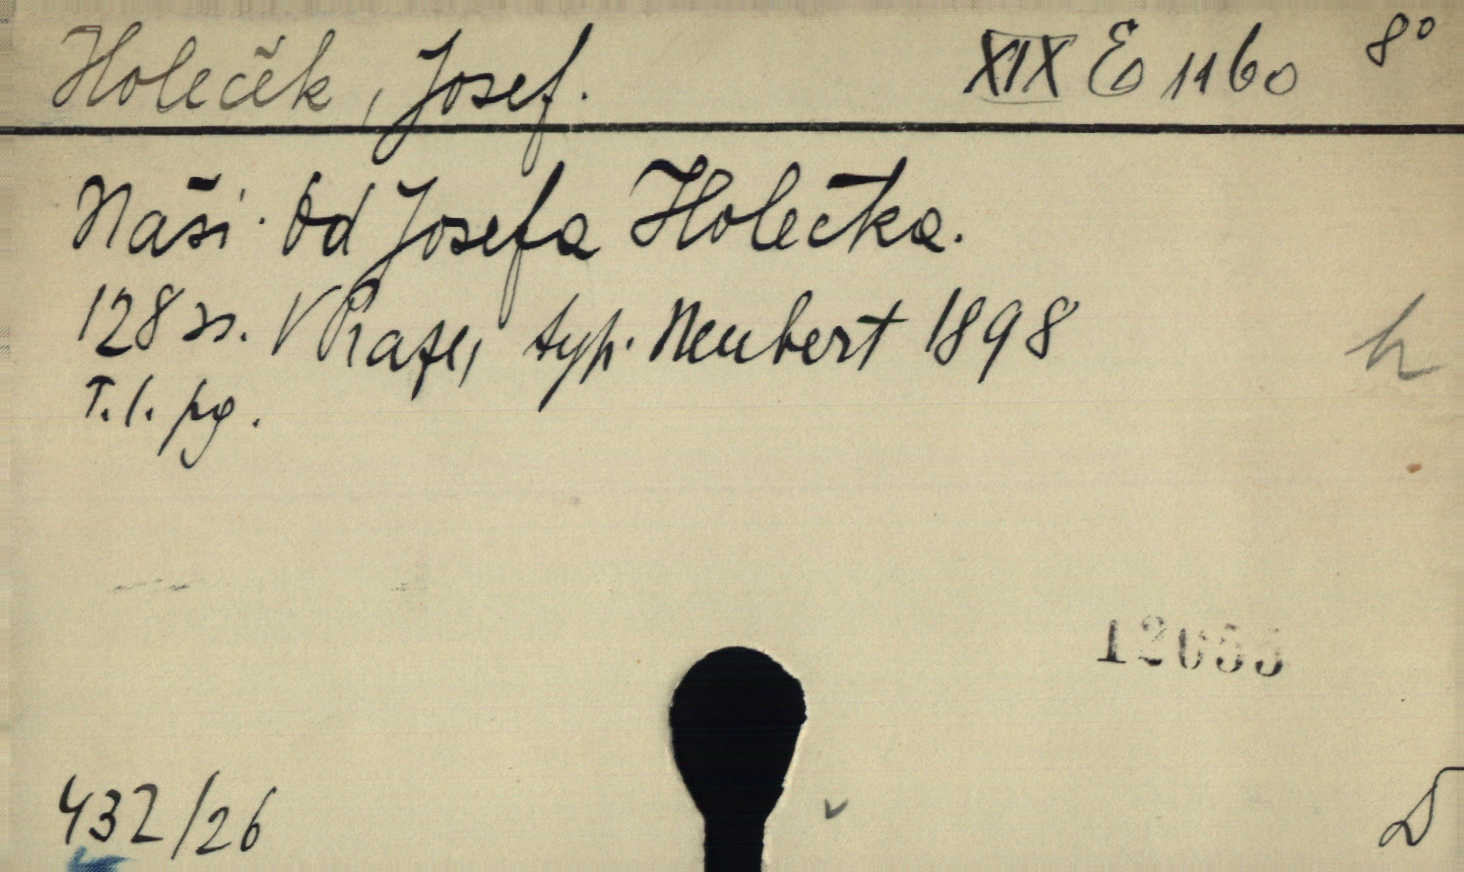 Holeček, Josef. XIX E 1160 8°
Naši. Od Josefa Holečka.
128 ss. V Praze, typ. Neubert 1898
h
T. l. pg.
12055
432/26
D